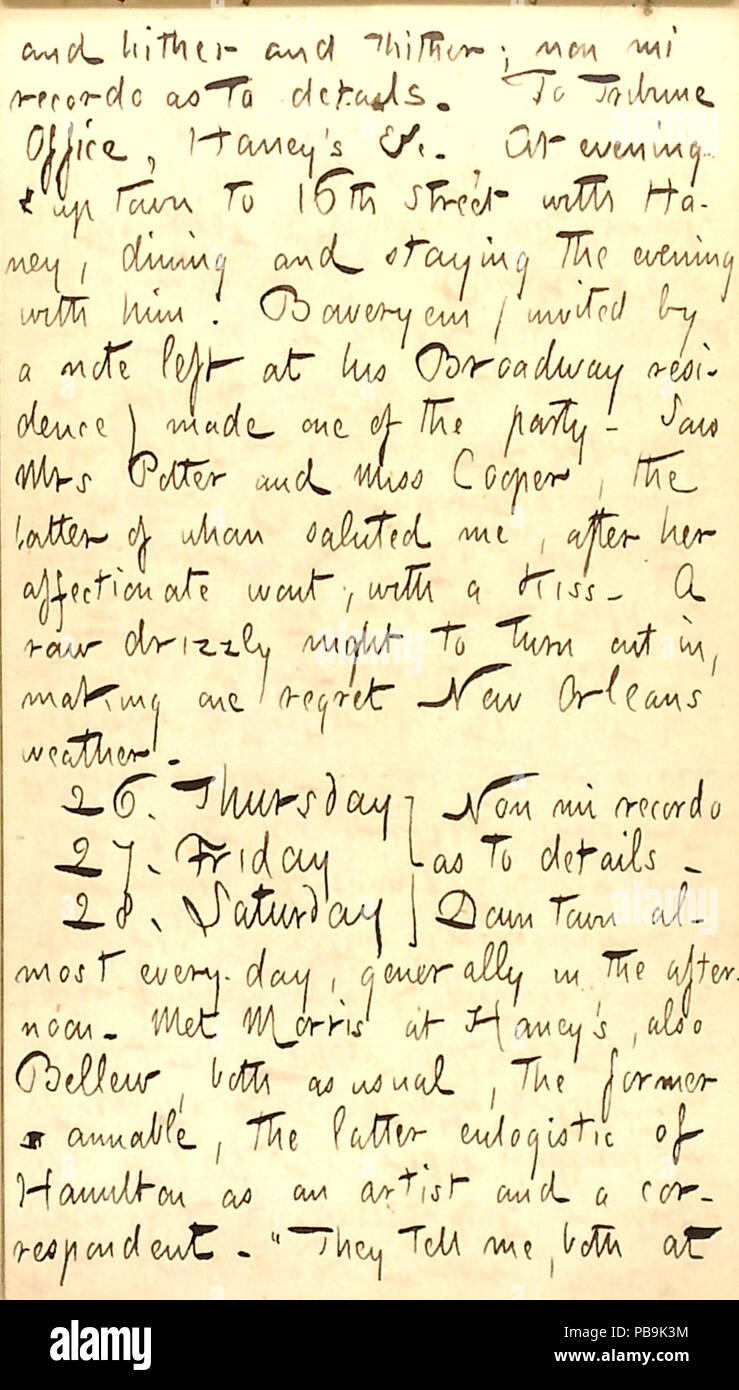 and hither and thither; non mi
recordo as to details. To Tribune
Office, Haney's &c. At evening
up town to 16th Street with Ha-
ney, dining and staying the evening
with him. Boweryem (invited by
a note left at his Broadway resi-
dence) made one of the party. Saw
Mrs Potter and Miss Cooper, the
latter of whom saluted me, after her
affectionate wont, with a kiss. A
raw drizzly night to turn out in,
making one regret New Orleans
weather.
26. Thursday } Non mi recordo
27. Friday } as to details.
28. Saturday } Down town al-
most every day, generally in the after-
noon. Met Morris at Haney's, also
Bellew, both as usual, the former
amiable, the latter eulogistic of
Hamilton as an artist and a cor-
respondent. "They tell me, both at
alamy
alamy
alamy
Image ID: PB9K3M
www.alamy.com